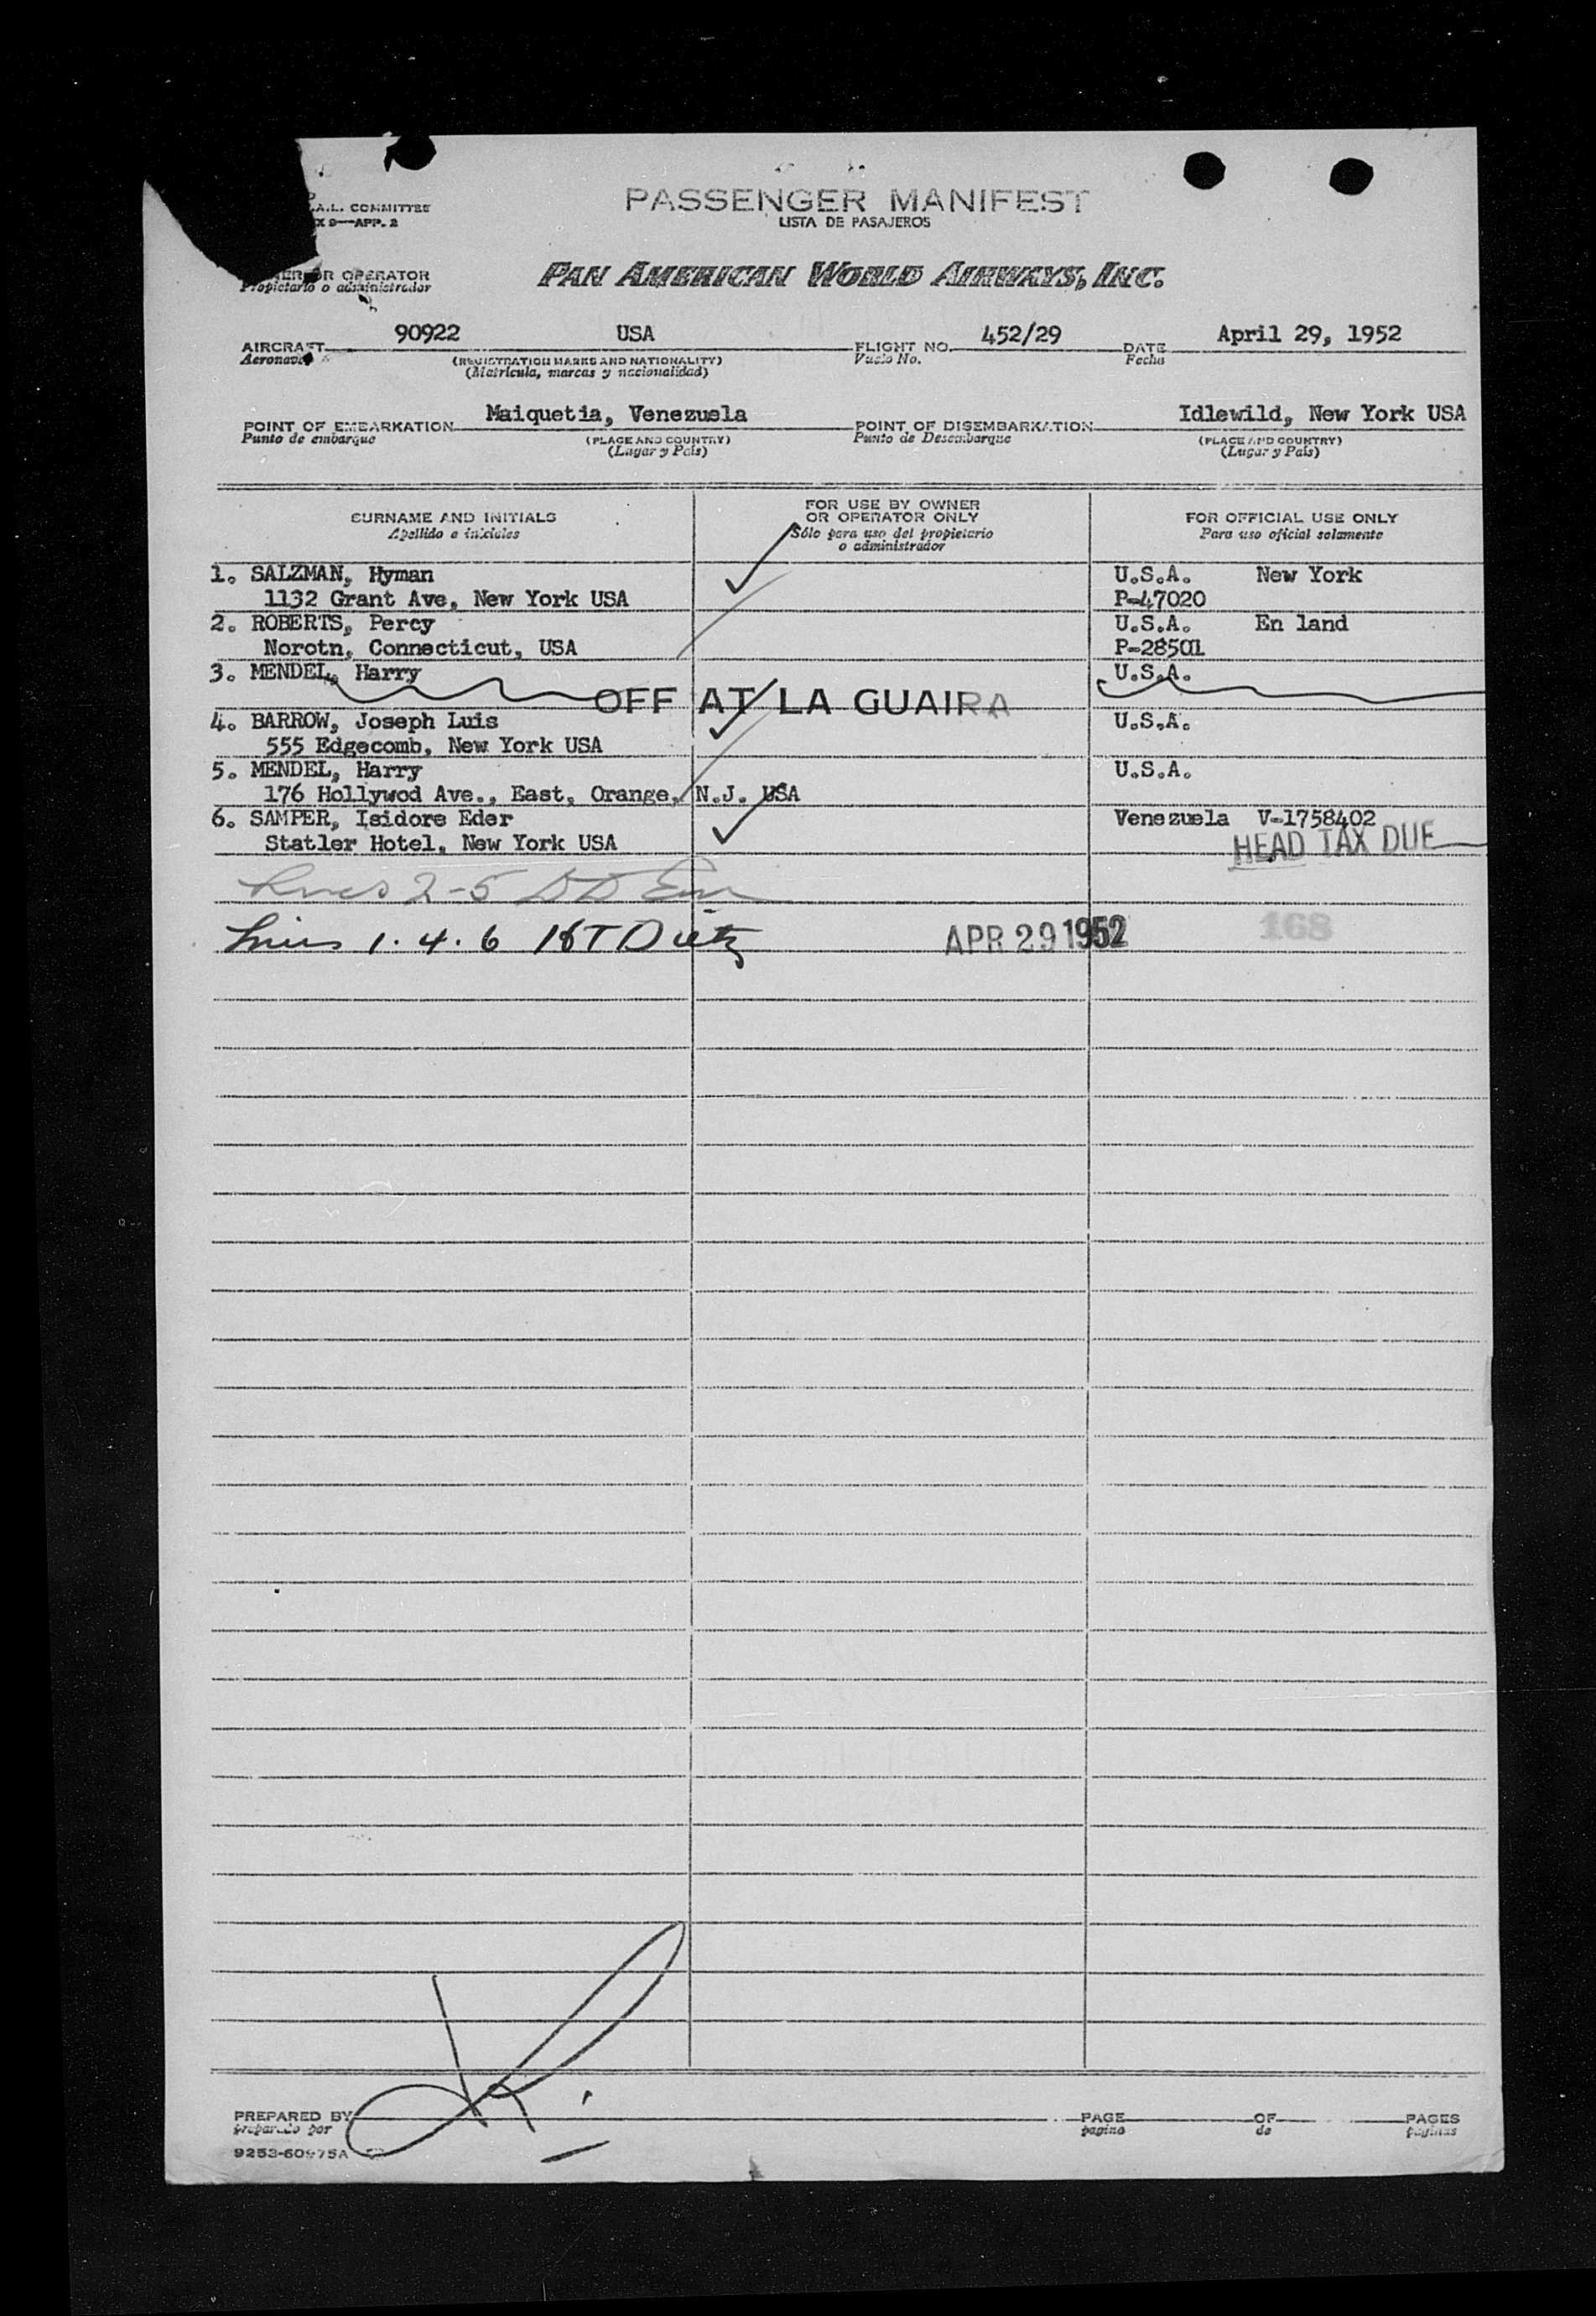 .A.L. COMMITTEE
X 9—APP. 2
PASSENGER MANIFEST
LISTA DE PASAJEROS
OR OPERATOR
Propietario o administrador
PAN AMERICAN WORLD AIRWAYS, INC.
AIRCRAFT 90922 USA FLIGHT NO. 452/29 DATE April 29, 1952
Aeronave (REGISTRATION MARKS AND NATIONALITY) Vuelo No. Fecha
(Matrícula, marcas y nacionalidad)
POINT OF EMBARKATION Maiquetia, Venezuela POINT OF DISEMBARKATION Idlewild, New York USA
Punto de embarque (PLACE AND COUNTRY) Punto de Desembarque (PLACE AND COUNTRY)
(Lugar y País) (Lugar y País)
SURNAME AND INITIALS
Apellido e iniciales
FOR USE BY OWNER
OR OPERATOR ONLY
Sólo para uso del propietario
o administrador
FOR OFFICIAL USE ONLY
Para uso oficial solamente
1. SALZMAN, Hyman U.S.A. New York
1132 Grant Ave, New York USA P-47020
2. ROBERTS, Percy U.S.A. En land
Norotn, Connecticut, USA P-28501
3. MENDEL, Harry U.S.A.
OFF AT LA GUAIRA
4. BARROW, Joseph Luis U.S.A.
555 Edgecomb, New York USA
5. MENDEL, Harry U.S.A.
176 Hollywod Ave., East, Orange, N.J. USA
6. SAMPER, Isidore Eder Venezuela V-1758402
Statler Hotel, New York USA HEAD TAX DUE
2-5
1. 4. 6 APR 29 1952 168
PREPARED BY PAGE OF PAGES
preparado por página de páginas
9253-60975A